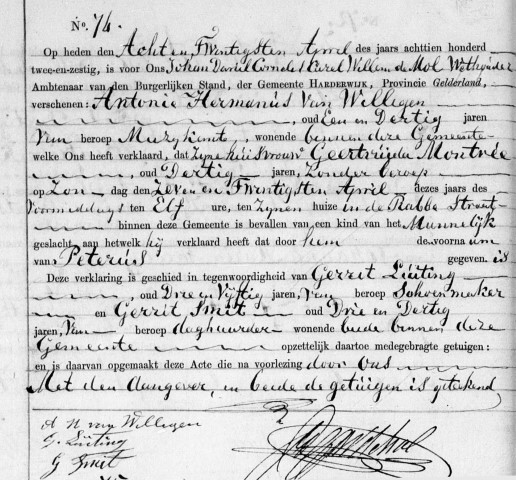 No. 74.
Op heden den Acht en Twintigsten April des jaars achttien honderd
twee-en-zestig, is voor Ons Johan Daniel Cornelis Carel Willem de Mol
Ambtenaar van den Burgerlijken Stand, der Gemeente HARDERWIJK, Provincie Gelderland,
verschenen: Antonie Hermanus Van Willegen
oud Een en Dertig jaren
Van beroep Muzykant, wonende binnen deze Gemeente
welke Ons heeft verklaard, dat Zyne huisvrouw Geertruida Montrée
oud Dertig jaren, Zonder beroep
op Zon- dag den Zeven en Twintigsten April dezes jaars des
Voormiddags ten Elf ure, ten Zynen huize in de Rabbe Straat
binnen deze Gemeente is bevallen van een kind van het Mannelijk
geslacht, aan hetwelk hij verklaard heeft dat door hem de voornaam
van Peterus gegeven. is
Deze verklaring is geschied in tegenwoordigheid van Gerrit Lüting
oud Drie en Vyftig jaren, Van beroep Schoenmaker
en Gerrit Smit oud Drie en Dertig
jaren, Van beroep daghuurder wonende beide binnen deze
Gemeente opzettelijk daartoe medegebragte getuigen:
en is daarvan opgemaakt deze Acte die na voorlezing door ons
Met den Aangever, en beide de getuigen is geteekend
A H van Willegen
G. Lüting
G Smit